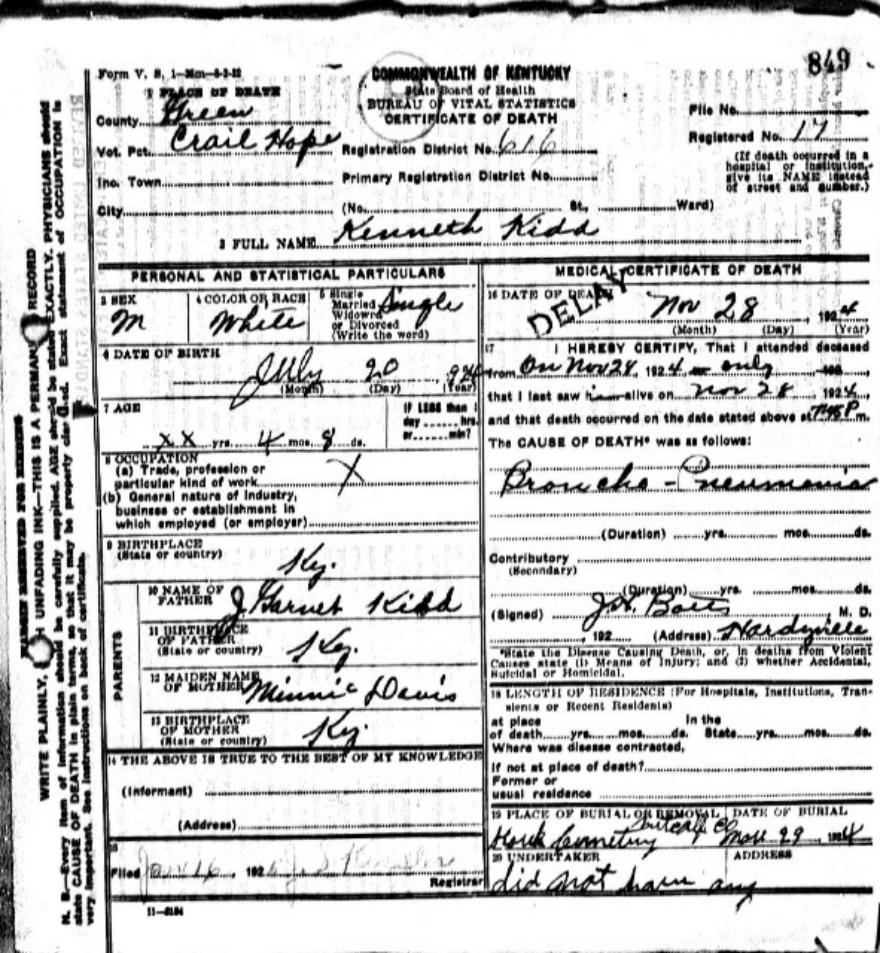 849
Form V. S. 1—
COMMONWEALTH OF KENTUCKY
State Board of Health
BUREAU OF VITAL STATISTICS
CERTIFICATE OF DEATH
1 PLACE OF DEATH
County Green
Vot. Pct. Crail Hope
Inc. Town
City
Registration District No. 616
Primary Registration District No.
(No. St., Ward)
File No.
Registered No. 17
(If death occurred in a
hospital or institution,
give its NAME instead
of street and number.)
2 FULL NAME Kenneth Kidd
PERSONAL AND STATISTICAL PARTICULARS
3 SEX
M
4 COLOR OR RACE
White
5 Single
Married
Widowed
or Divorced
(Write the word)
Single
6 DATE OF BIRTH
July 20, 924
(Month) (Day) (Year)
7 AGE
xx yrs. 4 mos. 8 ds.
IF LESS than 1
day hrs.
or min?
8 OCCUPATION
(a) Trade, profession or
particular kind of work X
(b) General nature of industry,
business or establishment in
which employed (or employer)
9 BIRTHPLACE
(State or country)
Ky.
PARENTS
10 NAME OF
FATHER J. Garnet Kidd
11 BIRTHPLACE
OF FATHER
(State or country) Ky.
12 MAIDEN NAME
OF MOTHER Minnie Davis
13 BIRTHPLACE
OF MOTHER
(State or country) Ky.
14 THE ABOVE IS TRUE TO THE BEST OF MY KNOWLEDGE
(Informant)
(Address)
15
Filed Jan 16, 192 J. S.
Registrar
11—
MEDICAL CERTIFICATE OF DEATH
DELAY
16 DATE OF DEATH
Nov 28, 1924
(Month) (Day) (Year)
17 I HEREBY CERTIFY, That I attended deceased
from On Nov 28, 1924 only
that I last saw h alive on Nov 28 1924,
and that death occurred on the date stated above at P m.
The CAUSE OF DEATH* was as follows:
Broncho-Pneumonia
(Duration) yrs. mos. ds.
Contributory
(Secondary)
(Duration) yrs. mos. ds.
(Signed) J.H. Botts, M. D.
, 192 (Address) Hardyville
*State the Disease Causing Death, or, in deaths from Violent
Causes state (1) Means of Injury; and (2) whether Accidental,
Suicidal or Homicidal.
18 LENGTH OF RESIDENCE (For Hospitals, Institutions, Tran-
sients or Recent Residents)
at place In the
of death yrs. mos. ds. State yrs. mos. ds.
Where was disease contracted,
if not at place of death?
Former or
usual residence
19 PLACE OF BURIAL OR REMOVAL
Metcalfe Co
Cemetery
DATE OF BURIAL
Nov. 29 1924
20 UNDERTAKER
did not have any
ADDRESS
MARGIN RESERVED FOR BINDING
WRITE PLAINLY, WITH UNFADING INK—THIS IS A PERMANENT RECORD
N. B.—Every item of information should be carefully supplied. AGE should be stated EXACTLY. PHYSICIANS should
state CAUSE OF DEATH in plain terms, so that it may be properly classified. Exact statement of OCCUPATION is
very important. See instructions on back of certificate.